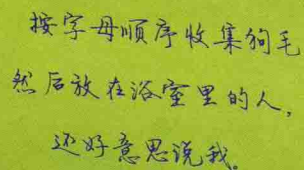 按字母顺序收集狗毛
然后放在浴室里的人，
还好意思说我。